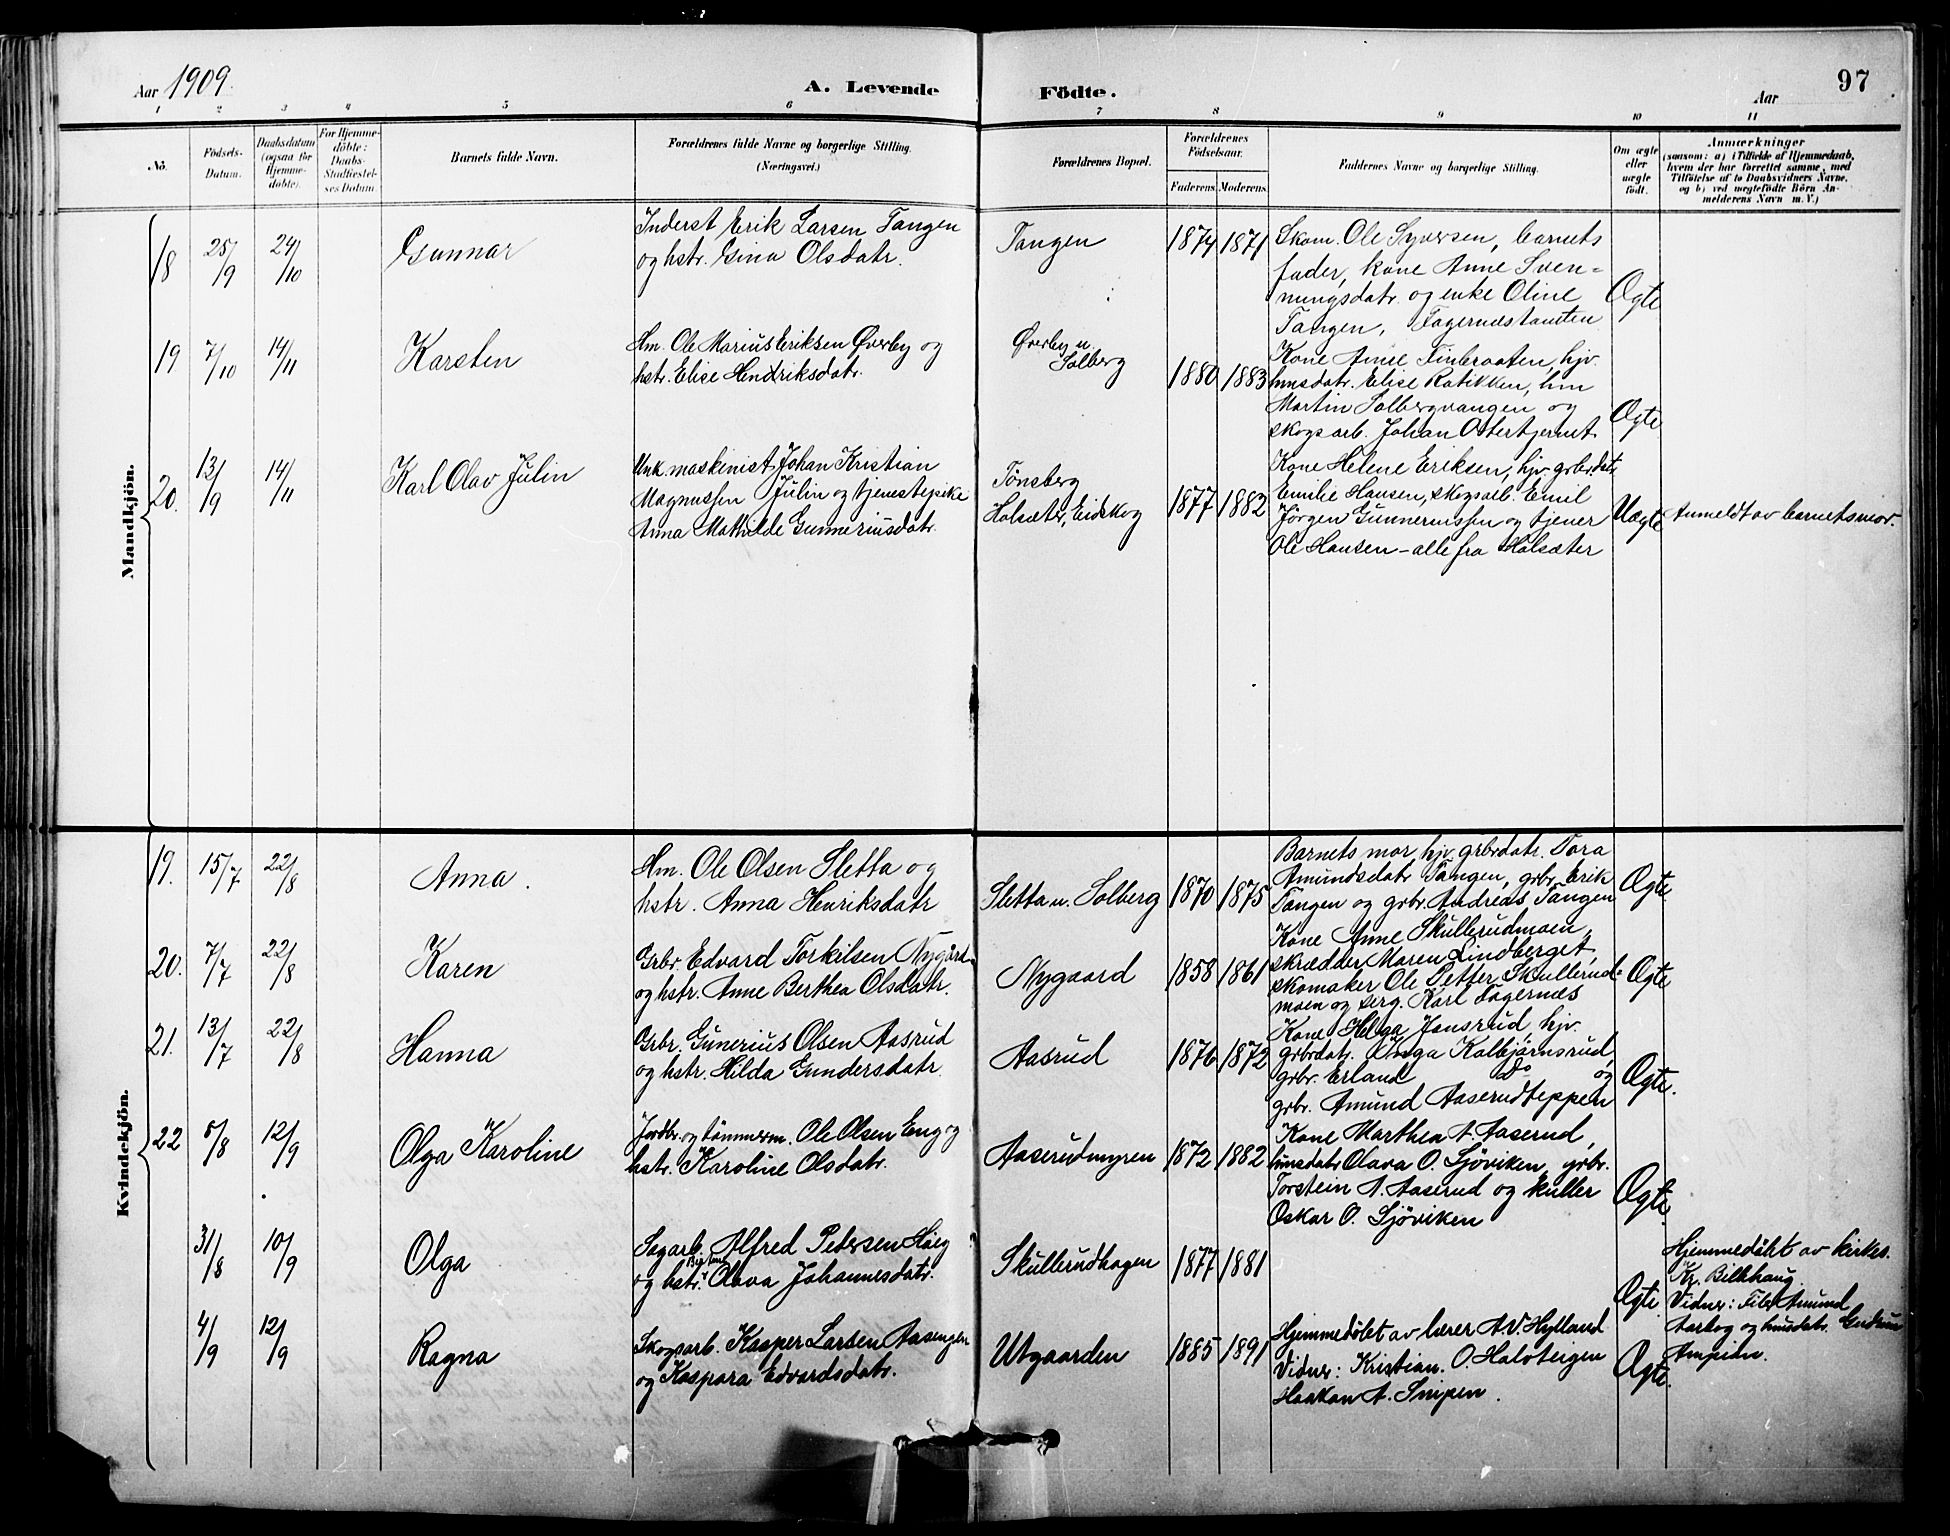 Aar 1909.
A. Levende Födte.
Aar
97
1 2 3 4 5 6 7 8 9 10 11
No.
Födsels-Datum.
Daabsdatum (ogsaa for Hjemme-døbte).
For Hjemme-døbte: Daabs-Stadfæstel-ses Datum
Barnets fulde Navn.
Forældrenes fulde Navne og borgerlige Stilling. (Næringsvei.)
Forældrenes Bopæl.
Forældrenes Födselsaar.
Faderens. Moderens.
Faddernes Navne og borgerlige Stilling.
Om ægte eller uægte født.
Anmærkninger
(saasom: a) i Tilfælde af Hjemmedaab,
hvem der har forrettet samme, med
Tilføielse af to Daabsvidners Navne,
og b) ved uægtefødte Börn An-
melderens Navn m. V.)
Mandkjön.
18 25/9 24/10 Gunnar
Inderst Erik Larsen Tangen
og hstr. Gina Olsdatr.
Tangen 1874 1871
Skom. Ole Syversen, barnets
fader, kone Anne Sven=
nungsdatr. og enke Oline
Tangen, Fagernæstomten
Ægte
19 7/10 14/11 Karsten
Hm. Ole Marius Eriksen Øverby og
hstr. Elise Hendriksdatr.
Øverby u. Solberg 1880 1883
Kone Anne Finbraaten, hjv.
husdatr. Elise Ratikken, hm
Martin Solbergvangen og
skogsarb. Johan Ottertjernet
Ægte
20. 13/9 14/11 Karl Olav Julin
Unk. maskinist Johan Kristian
Magnussen Julin og tjenestepike
Anna Mathilde Gunneriusdatr.
Tønsberg
Holsæter, Eidskog 1877 1882
Kone Helene Eriksen, hjv. grbrdatr
Emilie Hansen, skogsarb. Emil
Jörgen Gunneriussen og tjener
Ole Hansen - alle fra Holsæter
Uægte
Anmeldt av barnets mor.
Kvindekjön.
19. 15/7 22/8 Anna.
Hm. Ole Olsen Sletta og
hstr. Anna Henriksdatr
Sletta u. Solberg 1870 1875
Barnets mor, hjv. grbrdatr. Tora
Amundsdatr Tangen, grbr. Erik
Tangen og grbr. Andreas Tangen
Ægte
20. 7/7 22/8 Karen
Grbr. Edvard Torkilsen Nygård
og hstr. Anne Berthea Olsdatr.
Nygaard 1858 1861
Kone Anne Skullerudmoen,
skrædder Maren Lindberget,
skomaker Ole Petter Skullerud-
moen og serg. Karl Fagernæs
Ægte
21. 13/7 22/8 Hanna
Grbr. Gunerius Olsen Aasrud
og hstr. Hilda Gundersdatr.
Aasrud 1876 1872
Kone Helga Jonsrud, hjv.
grbrdatr. Inga Kalbjörnsrud,
grbr. Erland Do og
grbr. Amund Aaserudteppen
Ægte.
22 5/8 12/9 Olga Karoline
Jordbr. og tömmerm. Ole Olsen Eng og
hstr. Karoline Olsdatr.
Aaserudmyren 1872 1882
Kone Marthea A. Aaserud,
husdatr Olava O. Sjöviken, grbr.
Torstein A. Aaserud og kuller
Oskar O. Sjöviken
Ægte.
31/8 10/9 Olga
Sagarb. Alfred Petersen Høieg
og hstr. Olava Johannesdatr.
Skullerudhagen 1877 1881
Ægte
Hjemmedöbt av kirkes.
Kr. Bilkhaug.
Vidner: Amund
Aarkog og husdatr. Gudrun
Ampian.
4/9 12/9 Ragna
Skogsarb. Kasper Larsen Aasengen
og Kaspara Edvardsdatr.
Utgaarden 1885 1891
Hjemmedöbt av lærer A. V. Hylland
Vidner: Kristian. O. Halvbergen
Haakon A. Snipen.
Ægte.